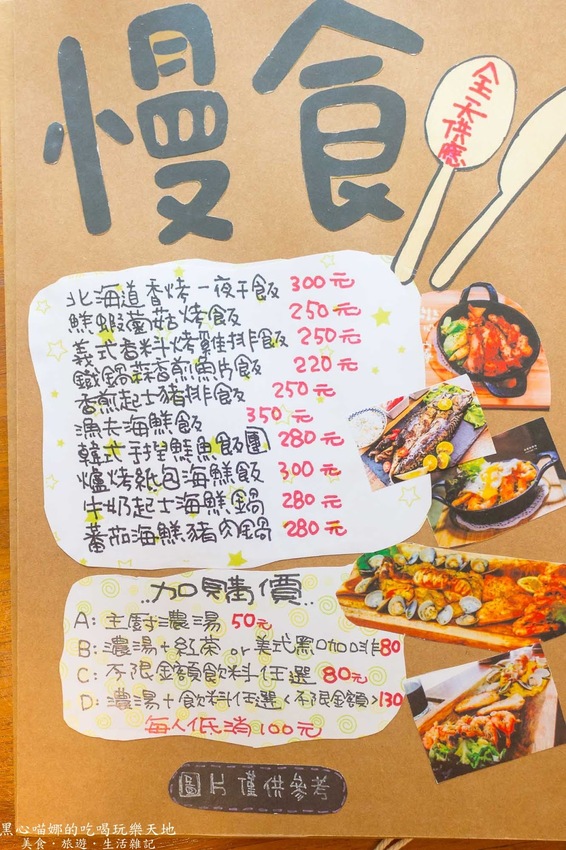 慢食
全天供應
北海道香烤一夜干飯 300元
鮮蝦蘑菇烤飯 250元
義式香料烤雞排飯 250元
鐵鍋蒜香煎魚片飯 220元
香煎起士豬排飯 250元
漁夫海鮮飯 350元
韓式手捏鮭魚飯團 280元
爐烤紙包海鮮飯 300元
牛奶起士海鮮鍋 280元
蕃茄海鮮豬肉鍋 280元
..加購價..
A: 主廚濃湯 50元
B: 濃湯+紅茶 or 美式黑咖啡80
C: 不限金額飲料任選 80元
D: 濃湯+飲料任選<不限金額>130
每人低消100元
圖片僅供參考
黑心喵娜的吃喝玩樂天地
美食·旅遊·生活雜記